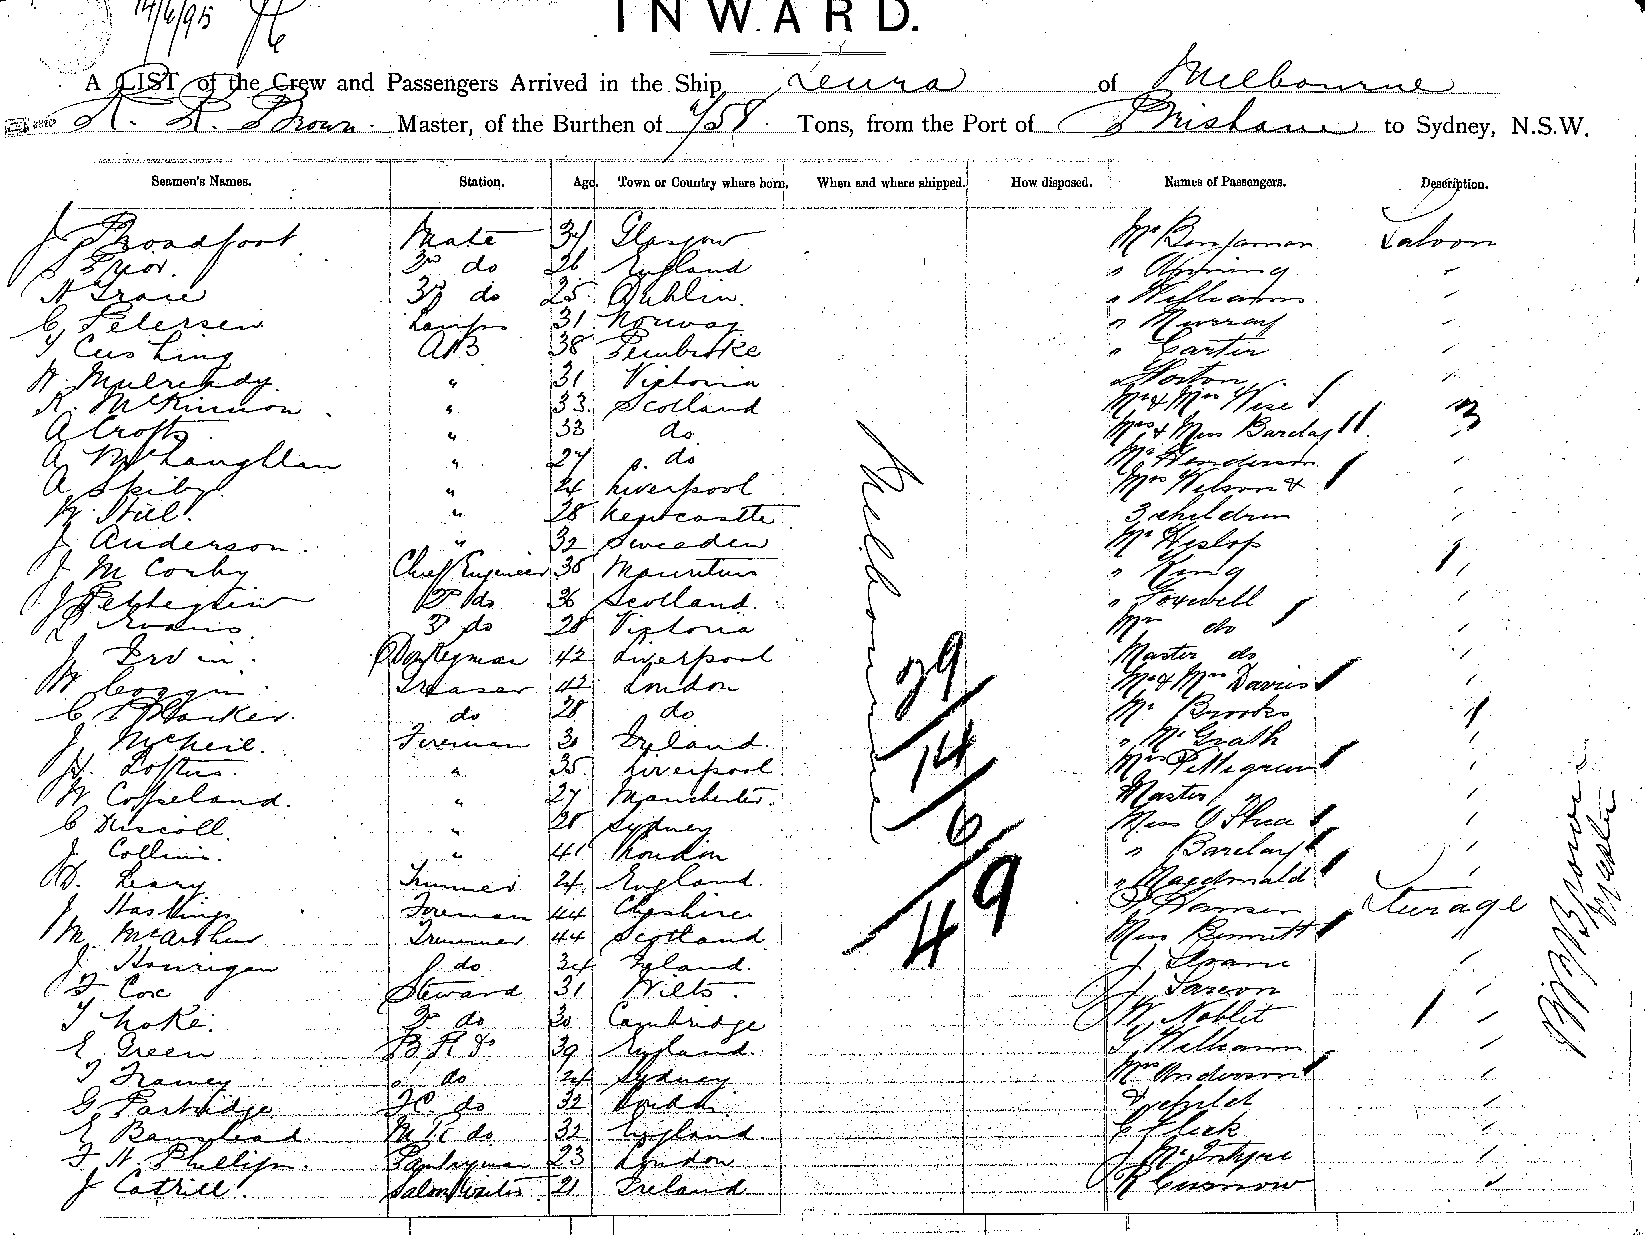 14/6/95
INWARD.
A LIST of the Crew and Passengers Arrived in the Ship Leura of Melbourne
Brown Master, of the Burthen of Tons, from the Port of Brisbane to Sydney, N.S.W.
Seamen's Names. Station. Age. Town or Country where born, When and where shipped. How disposed. Names of Passengers. Description.
J Broadfoot Mate 34 Glasgow Mr Benjamin Saloon
do 26 England "
H Grace 3rd do 25 Dublin. " Williams "
C Petersen Lamps 31 Norway " Murray "
T Cushing AB 38 Pembroke " Carter "
W. Mulready. " 31 Victoria Norton "
R. McKinnon " 33 Scotland Mr & Mrs Wise
A Crofts " 33 do Mrs & Miss Barclay
A McLaughlan " 27 do Mr Henderson
A " 24 Liverpool Mrs Wilson &
" 28 Newcastle 3 children
J Anderson. " 32 Sweaden Mr Heslop
J M Corby Chief Engineer 38 Mauritius " King
J Pettegrew 2nd do 36 Scotland. " Foxwell
Evans 3rd do 28 Victoria Mrs do
J Irvin. Donkeyman 42 Liverpool Master do
W Goggin Greaser 42 London Mr & Mrs Davies
C Parker. do 28 do Mr Brooks
J. McNeil. Fireman 30 Ireland. " McGrath
H. Loftus. " 35 Liverpool Mrs Pettegrew
W Coppeland. " 27 Manchester. Master
C Driscoll. " 28 Sydney Miss O'Shea
J Collins. " 41 London " Barclay
D. Leary Trimmer 24 England. " Macdonald
J Hastings Fireman 44 Cheshire Hansen Sturage
M McArthur Trimmer 44 Scotland Miss Bennett
J Hourigan do 34 Ireland. J Sloane
F Cox Steward 31 Wilts. J
T Noke. 2nd do 30 Cambridge W Noblet
E Green 39 England T Williams
T do 24 Sydney Mrs Anderson
G Partridge do 32 London & child
E do 32 England C Fleck
F H Phillips. Pantryman 23 London J McIntyre
J Cotrill. Saloon Waiter 21 Ireland R Curnow
Melbourne
29
14
6
49
Brown
Master